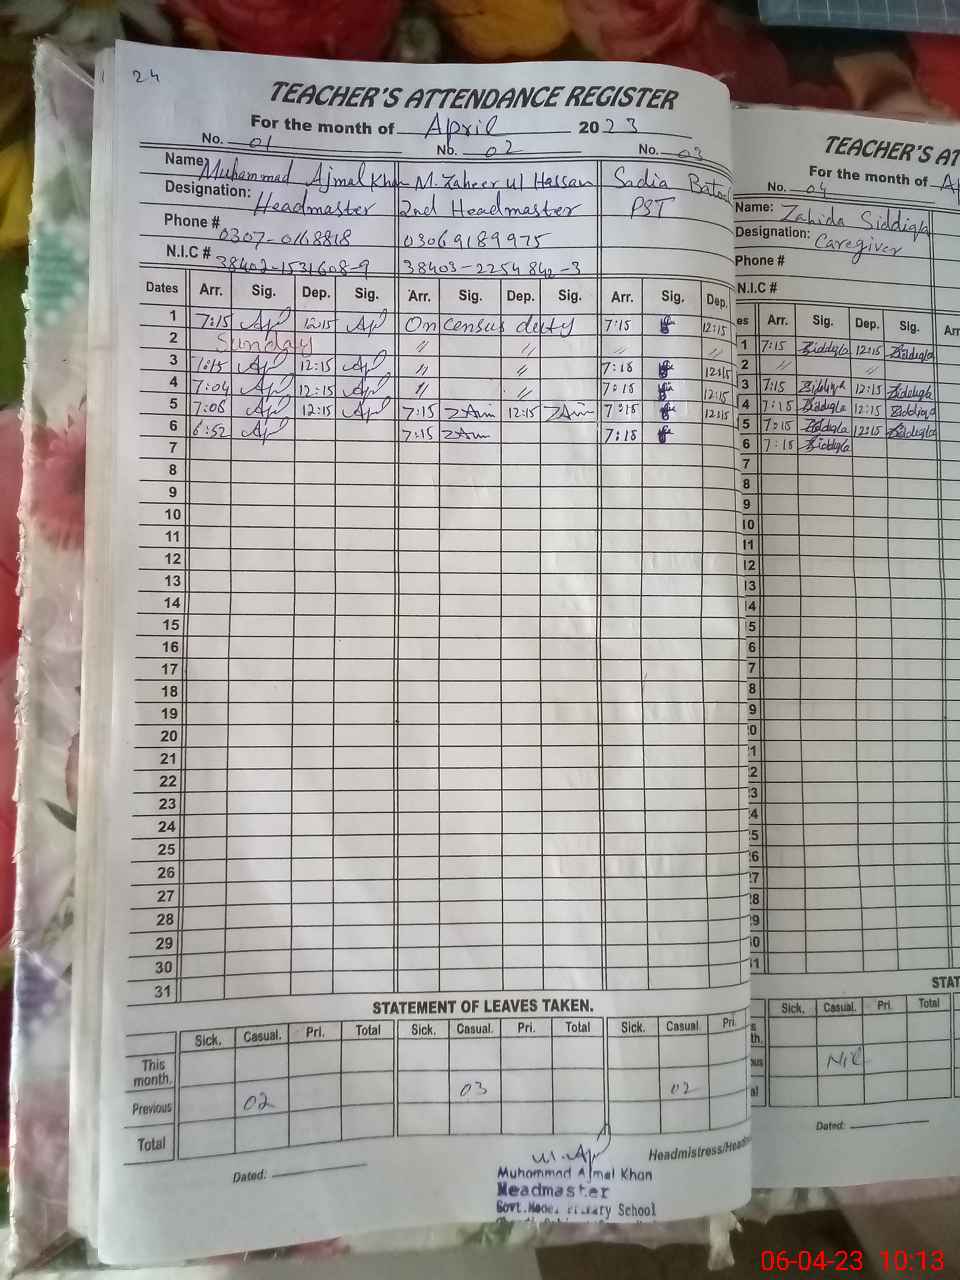 24
TEACHER'S ATTENDANCE REGISTER
For the month of April 2023
No. 01 No. 02 No. 03
Name: Muhammad Ajmal Khan M. Zaheer ul Hassan Sadia Batool
Designation: Headmaster 2nd Headmaster PST
Phone # 0307-0168818 03069189975
N.I.C # 38402-1531608-9 38403-2254842-3
Dates Arr. Sig. Dep. Sig. Arr. Sig. Dep. Sig. Arr. Sig. Dep.
1 7:15 12:15 On census duty 7:15 12:15
2 Sunday // // // //
3 7:15 12:15 // // 7:15 12:15
4 7:04 12:15 // // 7:15 12:15
5 7:08 12:15 7:15 12:15 7:15 12:15
6 6:52 7:15 7:15
7
8
9
10
11
12
13
14
15
16
17
18
19
20
21
22
23
24
25
26
27
28
29
30
31
STATEMENT OF LEAVES TAKEN.
Sick. Casual. Pri. Total Sick. Casual. Pri. Total Sick. Casual Pri.
This month.
Previous 02 03 02
Total
Dated:
Headmistress/Head
Muhammad Ajmal Khan
Headmaster
Govt. Model Primary School
TEACHER'S AT
For the month of Ap
No. 04
Name: Zahida Siddiqa
Designation: Caregiver
Phone #
N.I.C #
es Arr. Sig. Dep. Sig. Arr
1 7:15 Siddiqa 12:15 Siddiqa
2 // //
3 7:15 Siddiqa 12:15 Siddiqa
4 7:15 Siddiqa 12:15 Siddiqa
5 7:15 Siddiqa 12:15 Siddiqa
6 7:15 Siddiqa
7
8
9
10
11
12
13
14
15
6
7
8
9
0
1
2
3
4
5
6
7
8
9
0
1
STAT
Sick. Casual. Pri. Total
s
th.
ous Nil
al
Dated:
06-04-23 10:13